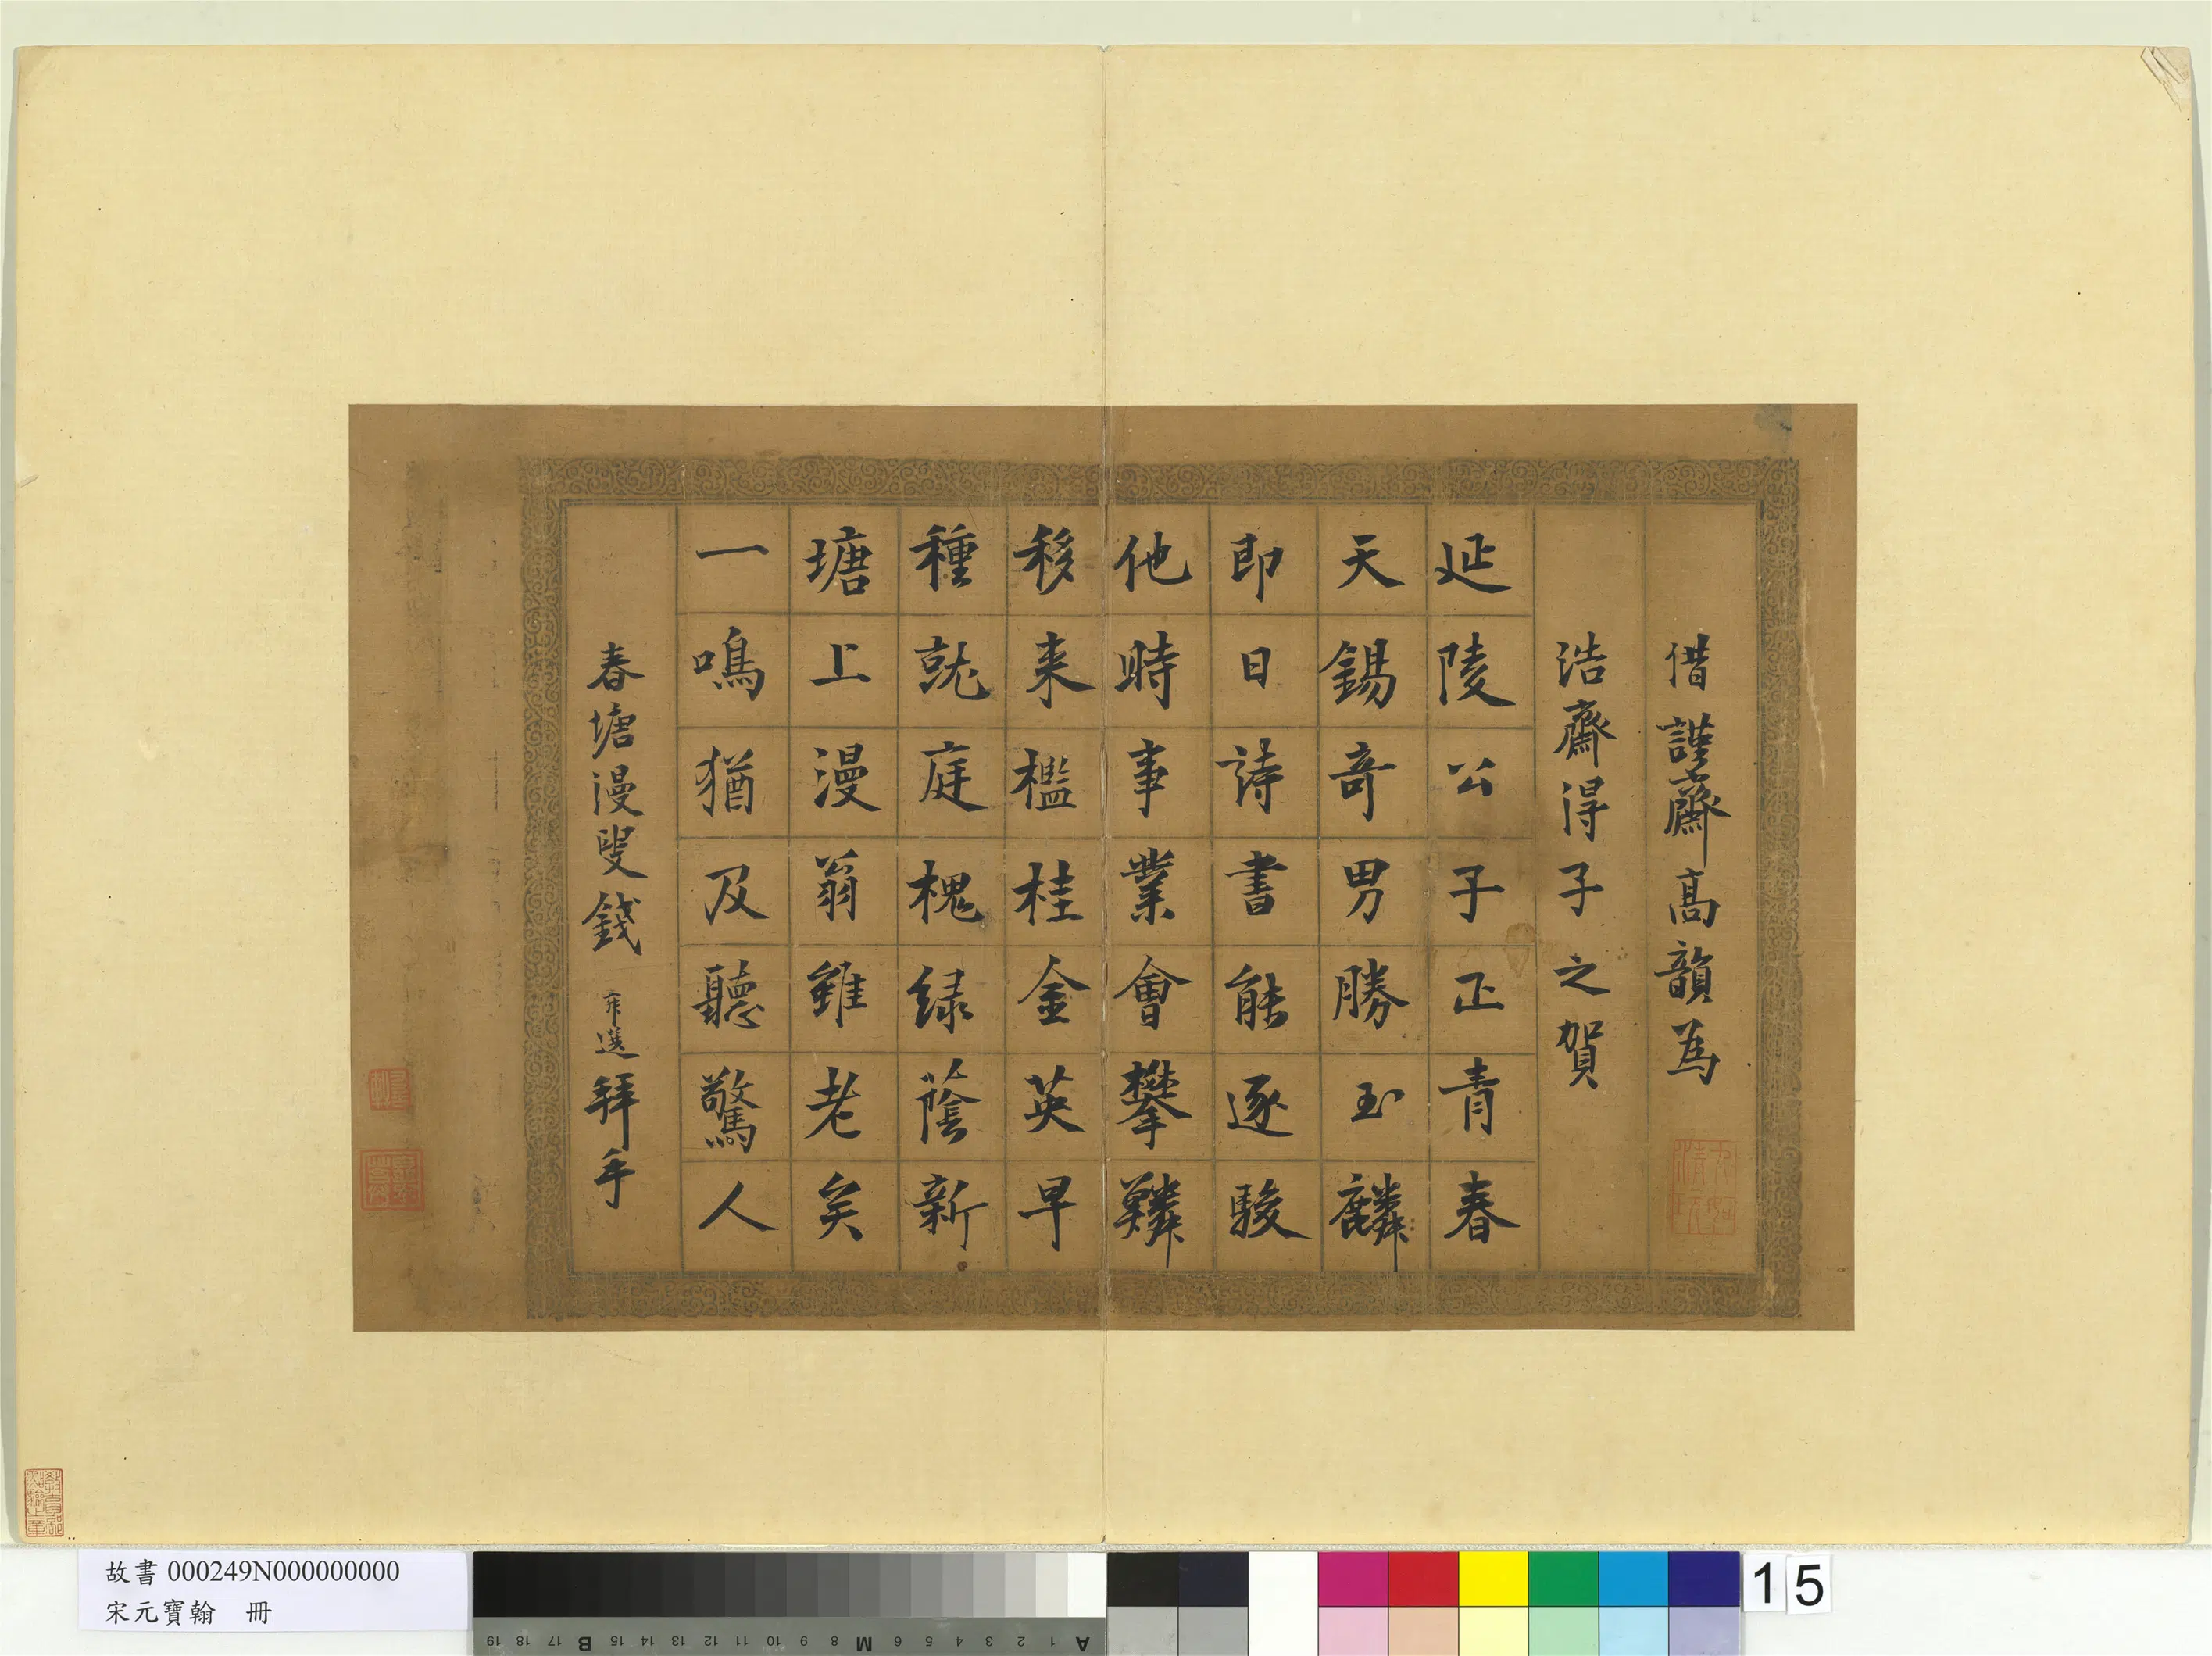 借謹齋高韻為
浩齋得子之賀
延陵公子正青春
天錫奇男勝玉麟
即日詩書能逐駿
他時事業會攀鱗
移来檻桂金英早
種就庭槐緑蔭新
塘上漫翁雖老矣
一鳴猶及聽驚人
春塘漫叟錢 選拜手
故書 000249N000000000
宋元寶翰 冊
19 18 17 B 17 16 15 14 13 12 11 10 9 8 M 6 5 4 3 2 1 A
15